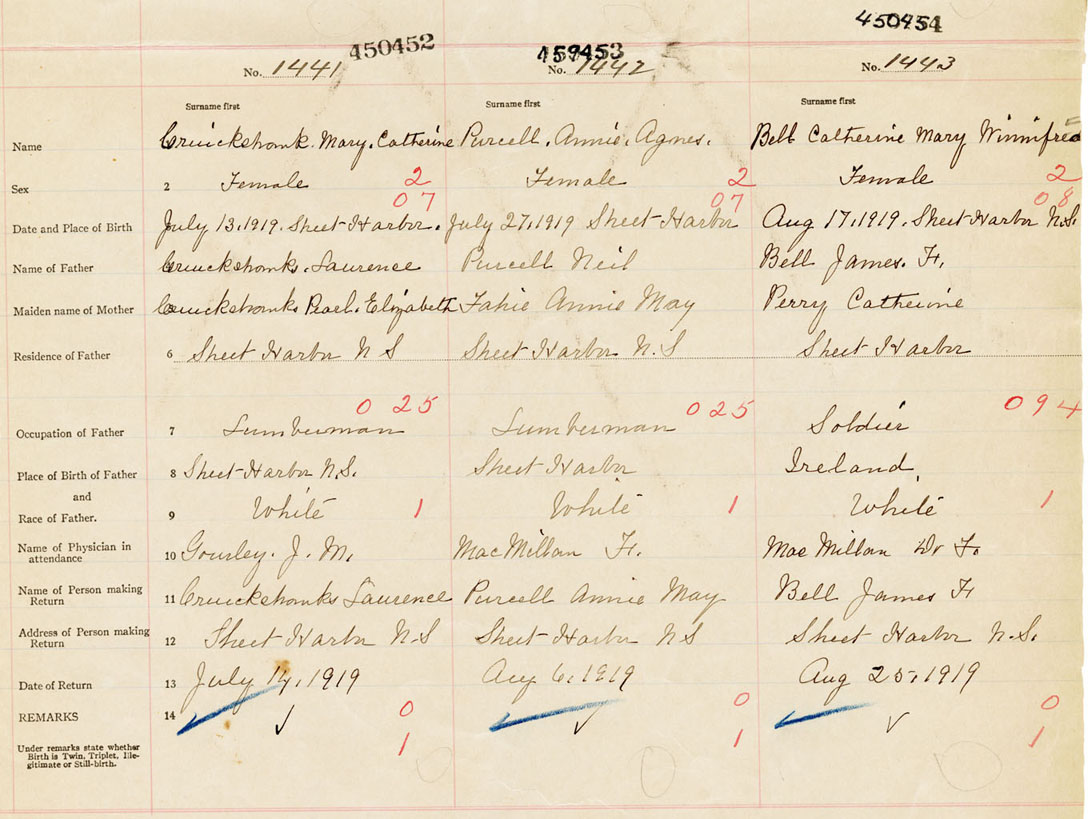 450452 459453 450454
No. 1441 No. 1442 No. 1443
Surname first Surname first Surname first
Name Cruickshank. Mary. Catherine Purcell. Annie. Agnes. Bell Catherine Mary Winnifred
Sex 2 Female 2 Female 2 Female 2
07 07 08
Date and Place of Birth July 13.1919. Sheet Harbor. July 27.1919 Sheet Harbor Aug 17.1919. Sheet Harbor N.S.
Name of Father Cruickshanks. Laurence Purcell Neil Bell James. H.
Maiden name of Mother Cruickshanks Pearl. Elizabeth Fahie Annie May Perry Catherine
Residence of Father 6 Sheet Harbor N S Sheet Harbor N.S Sheet Harbor
025 025 094
Occupation of Father 7 Lumberman Lumberman Soldier
Place of Birth of Father 8 Sheet Harbor N.S. Sheet Harbor Ireland
and
Race of Father. 9 White 1 White 1 White 1
Name of Physician in
attendance 10 Gourley. J. M. MacMillan F. MacMillan Dr F.
Name of Person making
Return 11 Cruickshanks Laurence Purcell Annie May Bell James H
Address of Person making
Return 12 Sheet Harbor N S Sheet Harbor N S Sheet Harbor N.S.
Date of Return 13 July 14, 1919 Aug 6, 1919 Aug 25, 1919
REMARKS 14 0 0 0
Under remarks state whether
Birth is Twin, Triplet, Ille-
gitimate or Still-birth. 1 1 1